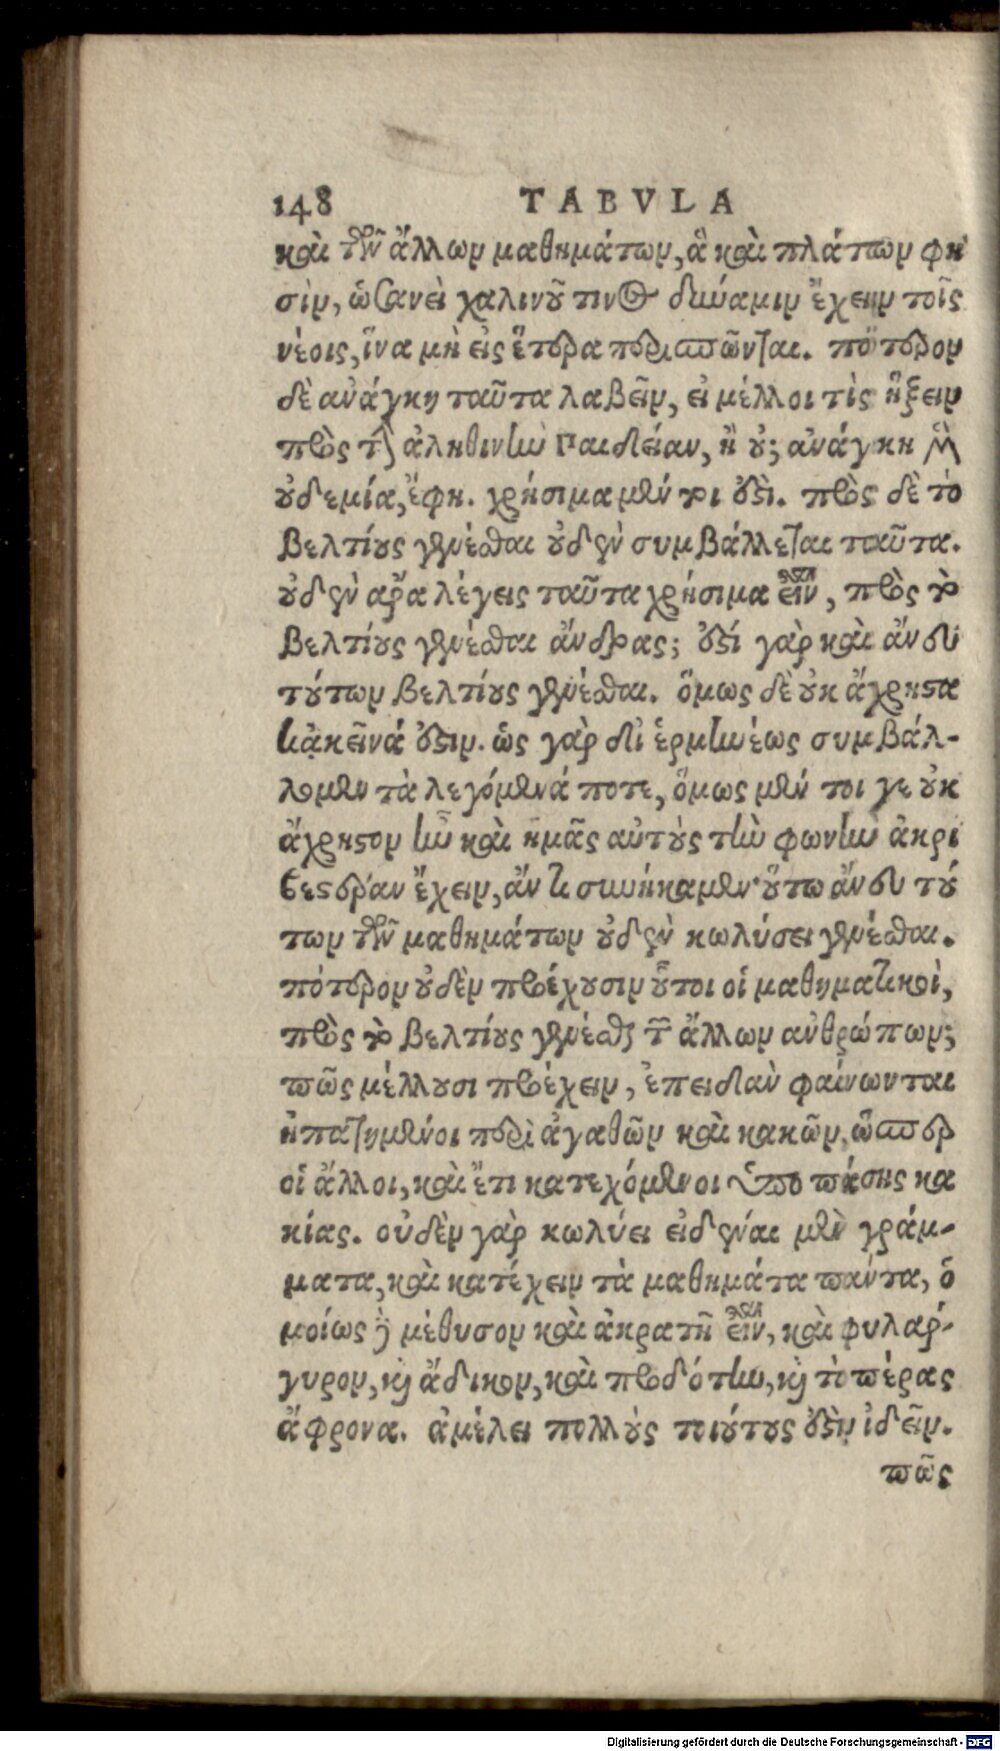 148 TABVLA
καὶ τῶν ἄλλων μαθημάτων, ἃ καὶ πλάτων φη
σὶν, ὡσανεὶ χαλινοῦ τινος δύναμιν ἔχειν τοῖς
νέοις, ἵνα μὴ εἰς ἕτερα περισπῶνται. πότερον
δὲ ἀνάγκη ταῦτα λαβεῖν, εἰ μέλλοι τὶς ἥξειν
πρὸς τὴν ἀληθινὴν Παιδείαν, ἢ οὔ; ἀνάγκη μὲν
οὐδεμία, ἔφη. χρήσιμα μέν τοι ἐστὶ. πρὸς δὲ τὸ
βελτίους γενέσθαι οὐδὲν συμβάλλεται ταῦτα.
οὐδὲν ἄρα λέγεις ταῦτα χρήσιμα εἶναι, πρὸς τὸ
βελτίους γενέσθαι ἄνδρας; ἐστί γὰρ καὶ ἄνευ
τούτων βελτίους γενέσθαι. ὅμως δὲ οὐκ ἄχρηστα
κἀκεῖνά ἐστιν. ὡς γὰρ δι' ἑρμηνέως συμβάλ-
λομεν τὰ λεγόμενά ποτε, ὅμως μέν τοι γε οὐκ
ἄχρηστον ἦν καὶ ἡμᾶς αὐτοὺς τὴν φωνὴν ἀκρι
βεστέραν ἔχειν, ἄν τι συνήκαμεν· οὕτω ἄνευ τού
των τῶν μαθημάτων οὐδὲν κωλύσει γενέσθαι.
πότερον οὐδὲν προέχουσιν οὗτοι οἱ μαθηματικοὶ,
πρὸς τὸ βελτίους γενέσθαι τῶν ἄλλων ἀνθρώπων;
πῶς μέλλουσι προέχειν, ἐπειδὰν φαίνωνται
ἠπατημένοι περὶ ἀγαθῶν καὶ κακῶν, ὥσπερ
οἱ ἄλλοι, καὶ ἔτι κατεχόμενοι ὑπὸ πάσης κα
κίας. οὐδὲν γὰρ κωλύει εἰδέναι μὲν γράμ-
ματα, καὶ κατέχειν τὰ μαθημάτα πάντα, ὁ
μοίως δὲ μέθυσον καὶ ἀκρατῆ εἶναι, καὶ φυλάρ-
γυρον, καὶ ἄδικον, καὶ προδότην, καὶ τὸ πέρας
ἄφρονα. ἀμέλει πολλοὺς τοιούτους ἐστὶν ἰδεῖν.
πῶς
Digitalisierung gefördert durch die Deutsche Forschungsgemeinschaft - DFG